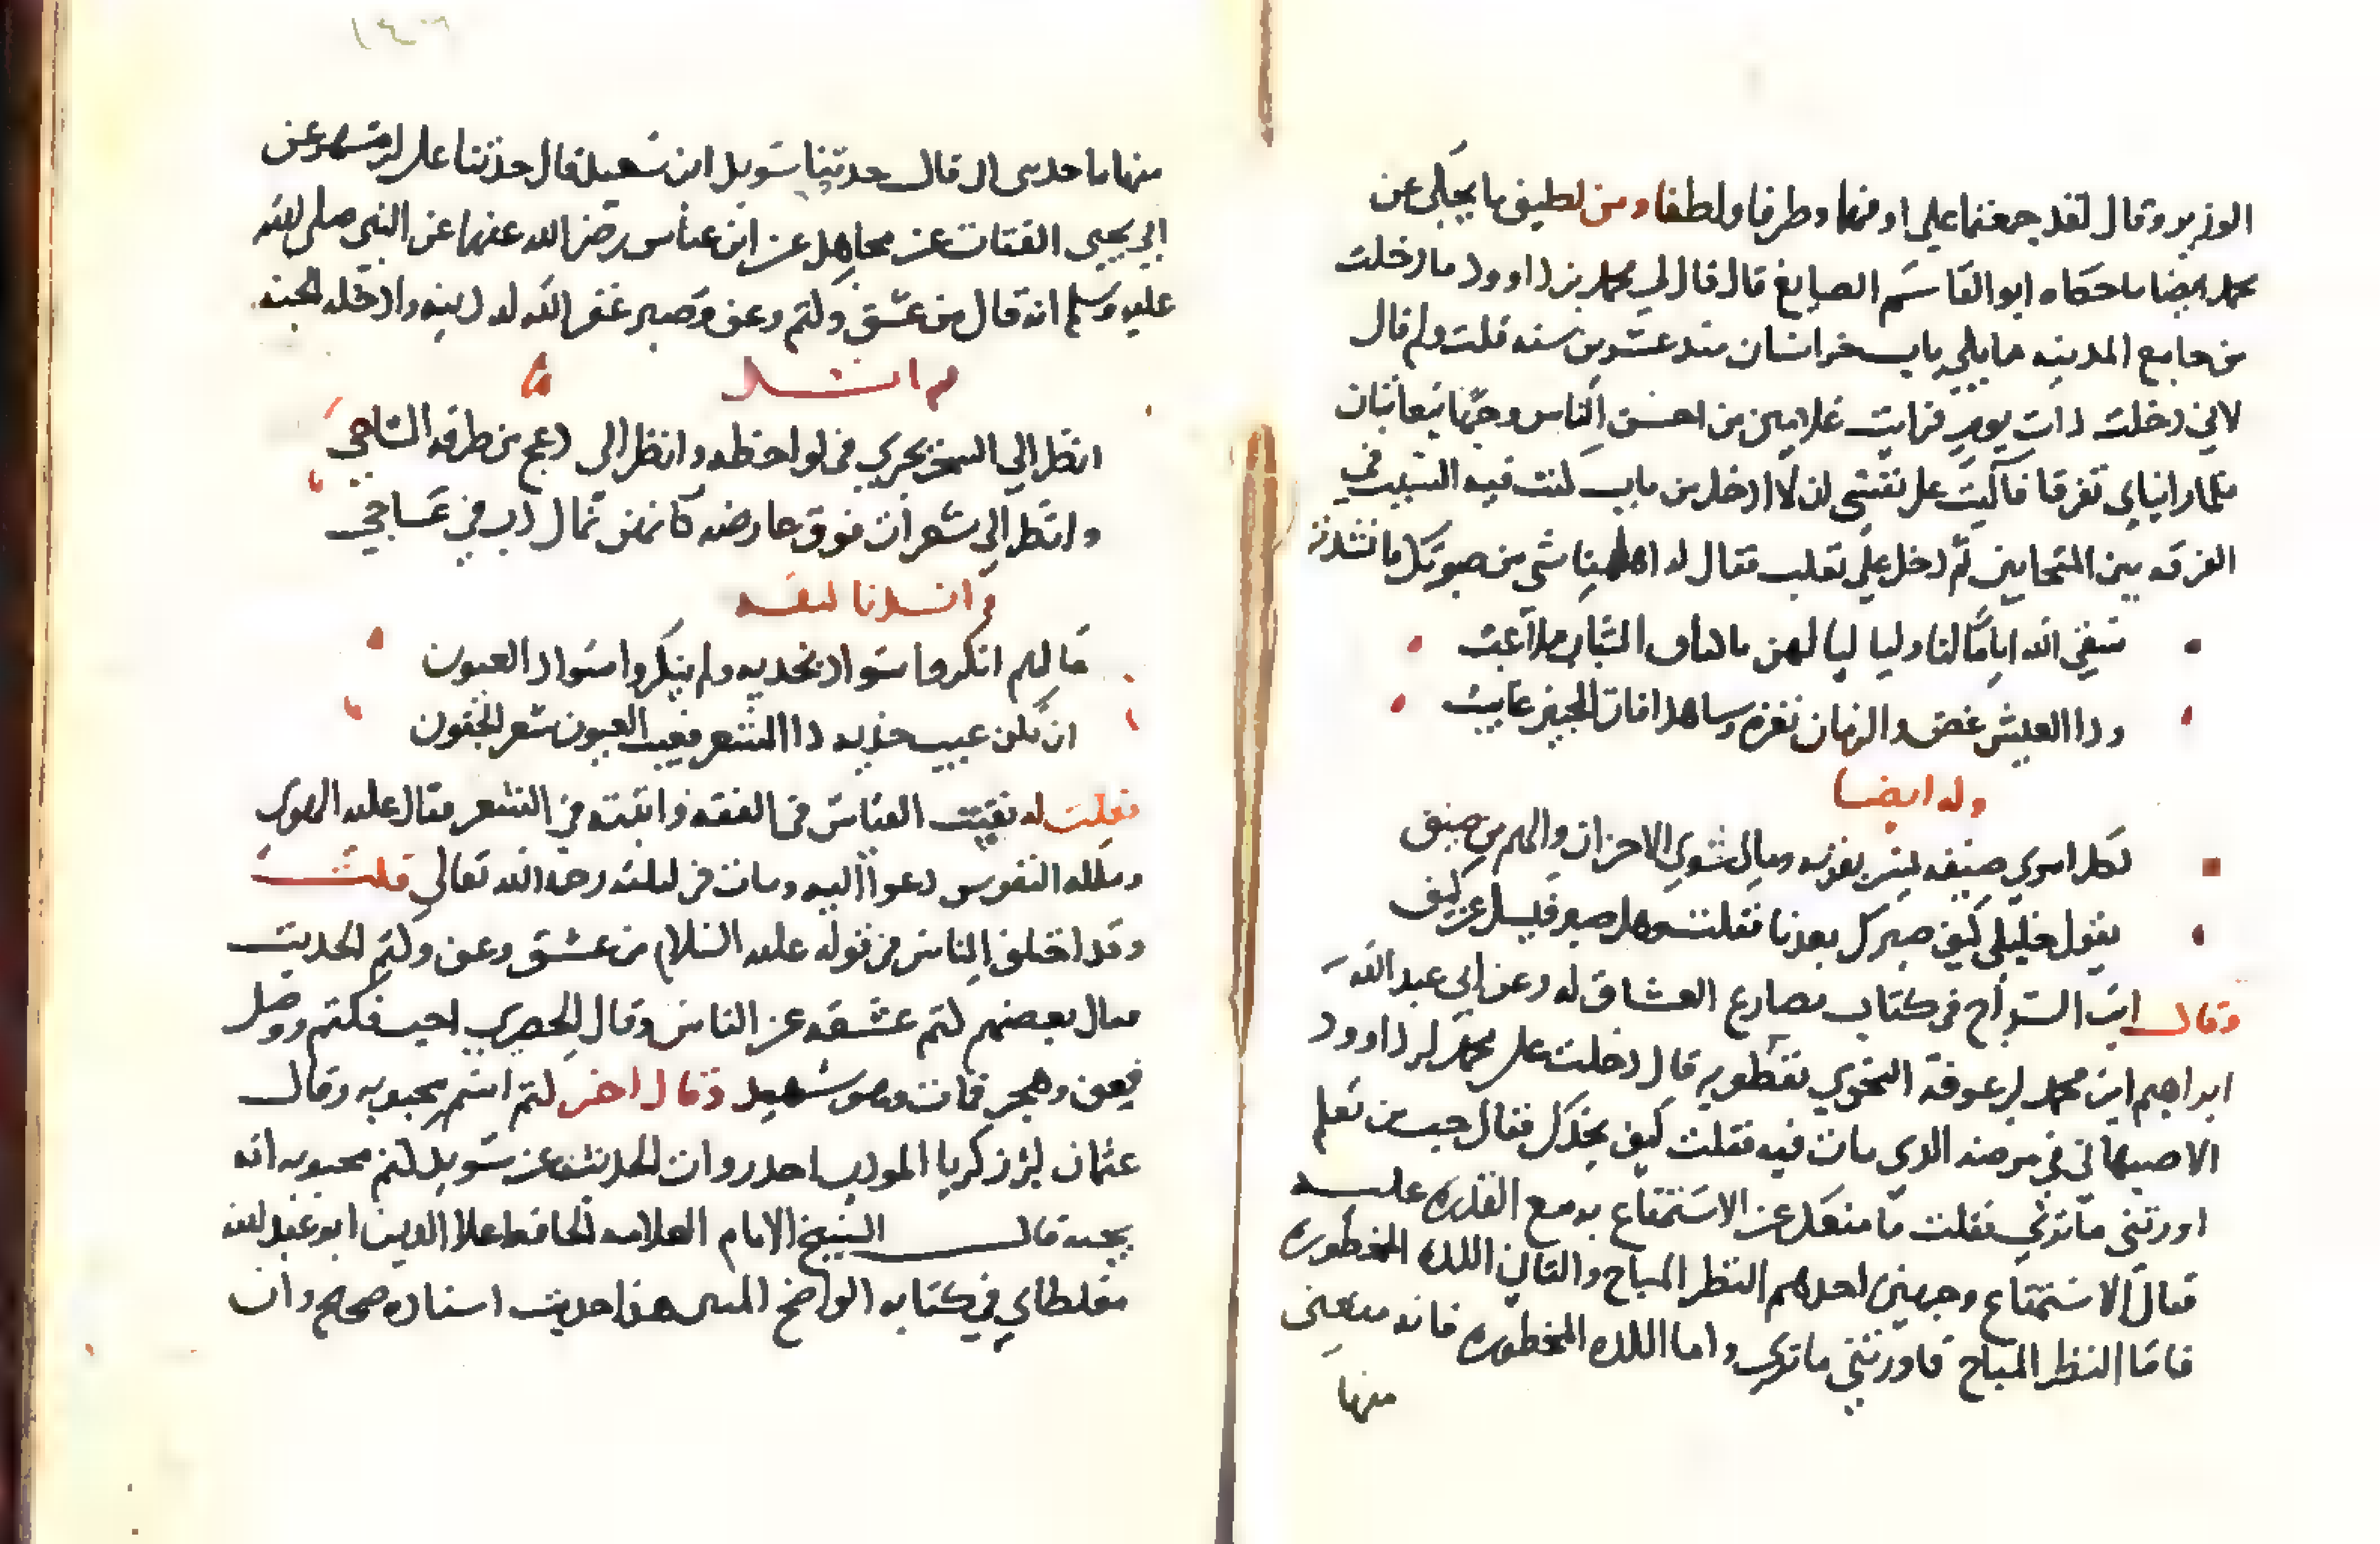 الوزير وقال لقد جمعتما علما وفهما وظرفا ولطفا ومن لطيف ما يحكى عن
محمد ايضا ما حكاه ابو القاسم الصايغ قال قال لي محمد بن داوود ما دخلت
من جامع المدينه مما يلي باب خراسان منذ عشرين سنه قلت ولم قال
لاني دخلت ذات يوم فرايت غلامين من احسن الناس وجها يتعاتبان
فلما رايناني تفرقا فآليت على نفسي ان لا ادخل من باب كنت فيه السبب في
الفرقه بين المتحابين ثم دخل على ثعلب فقال له اهل هنا شي من صبوتك فانشده
سقى الله اياما لنا ولياليا لهن باكناف الشباب ملاعب
وذا العيش غض والزمان بغره وساهد افات المحبين غايب
وله ايضا
لكل امري ضيف يسر بقربه ومالي سوى الاحزان والهم من ضيف
يقول خليلي كيف صبرك بعدنا فقلت وهل صبر فيسل عن كيف
وقال ابن السراج في كتاب مصارع العشاق له وعن ابي عبد الله
ابراهيم ابن محمد بن عرفة النحوي نفطويه قال دخلت على محمد بن داوود
الاصبهاني في مرضه الذي مات فيه فقلت كيف تجدك فقال حب من تعلم
اورثني ما ترى فقلت ما منعك عن الاستمتاع به مع القدره عليه
فقال الاستمتاع وجهين احدهم النظر المباح والثاني اللذه المحظوره
فاما النظر المباح فاورثني ما ترى واما اللذه المحظوره فانه منعني
منها
منها ما حدثني ابي قال حدثنا سويد ابن سعيد قال حدثنا علي بن مسهر عن
ابي يحيى القتات عن مجاهد عن ابن عباس رضي الله عنهما عن النبي صلى الله
عليه وسلم انه قال من عشق وكتم وعف وصبر غفر الله له ذنبه وادخله الجنه
ثم انشد
انظر الى السحر يجري في لواحظه وانظر الى دعج في طرفه الساجي
وانظر الى شعرات فوق عارضه كانهن نمال دب في عاج
ثم انشدنا لنفسه
ما لهم انكروا سوادا بخديه ولم ينكروا سواد العيون
ان يكن عيب خديه ذا الشعر فعيب العيون شعر الجفون
فقلت له نفيت القياس في الفقه واثبته في الشعر فقال غلبه الهوى
وملكه النفوس دعوا اليه ومات في ليلته رحمه الله تعالى قلت
وقد اختلف الناس في قوله عليه السلام من عشق وعف وكتم الحديث
فقال بعضهم كتم عشقه عن الناس وقال الحصري احب فكتم ووصل
فعف وهجر فمات وهو شهيد وقال اخر كتم اسم محبوبه وقال
عثمان بن زكريا المودب احد روات الحديث عن سويد كتم محبوبه انه
يحبه قال الشيخ الامام العلامه الحافظ علا الدين ابو عبد الله
مغلطاي في كتابه الواضح المبين هذا حديث اسناده صحيح وان